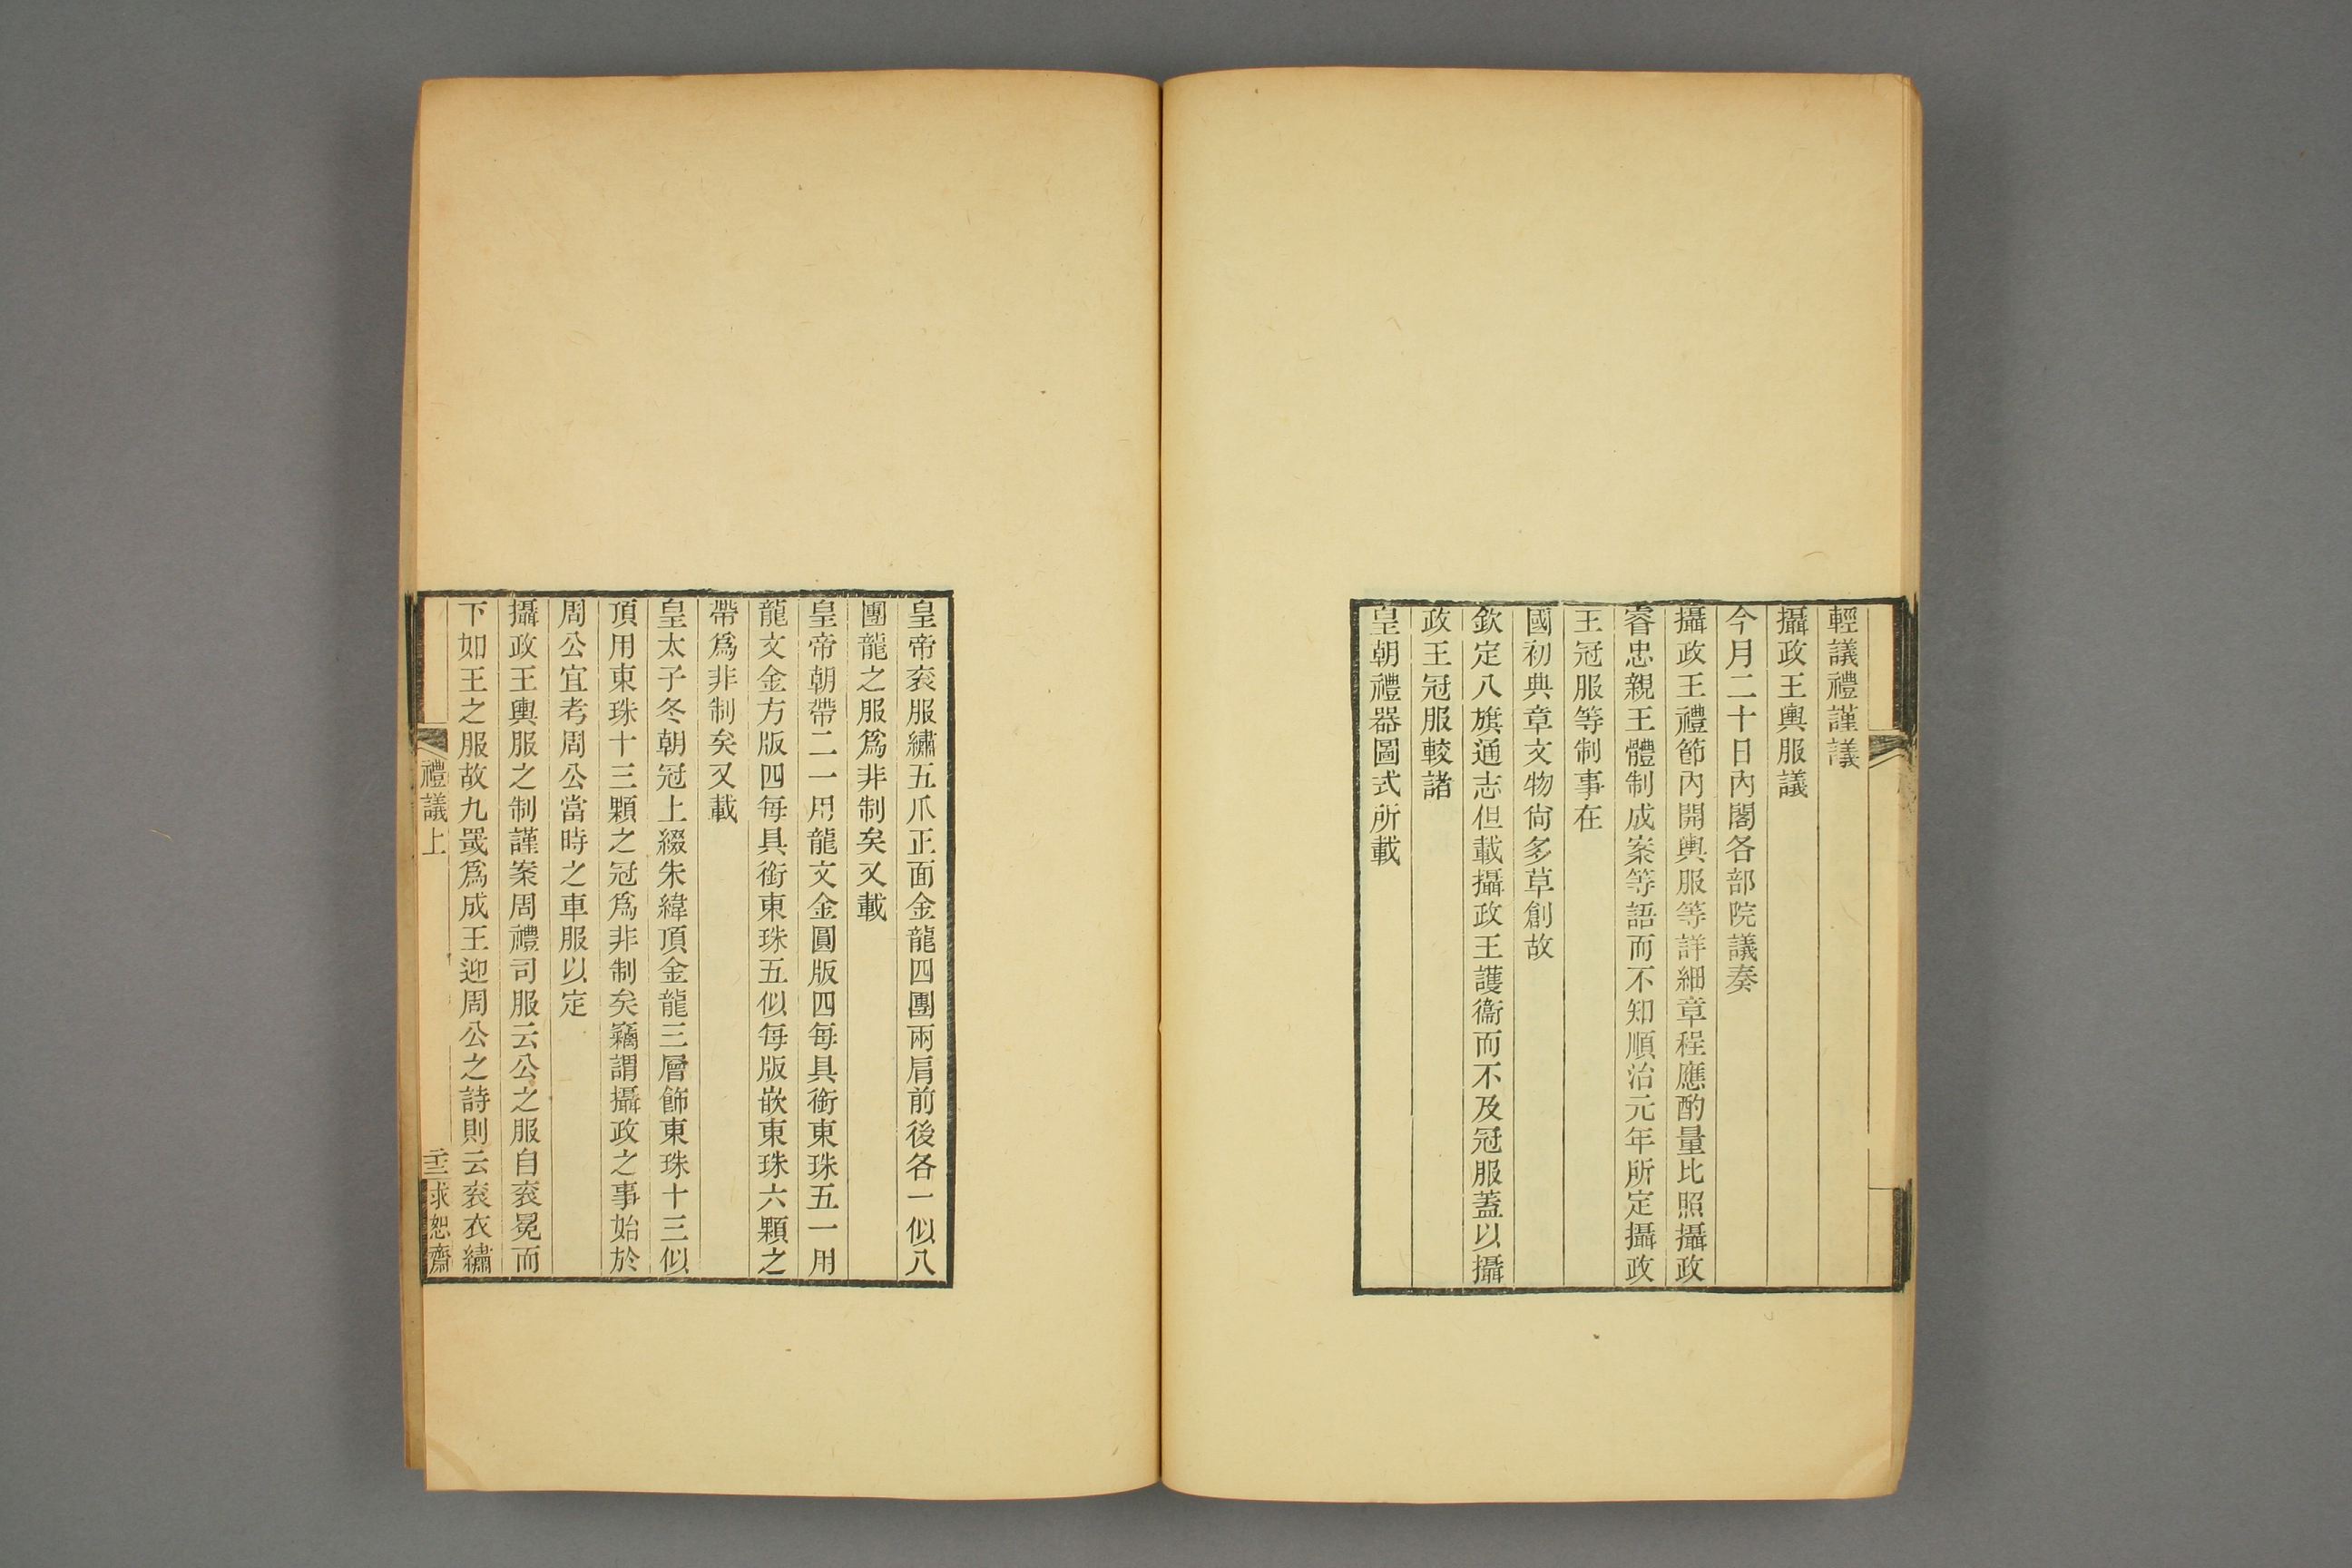 輕議禮謹議
攝政王輿服議
今月二十日內閣各部院議奏
攝政王禮節內開輿服等詳細章程應酌量比照攝政
睿忠親王體制成案等語而不知順治元年所定攝政
王冠服等制事在
國初典章文物尙多草創故
欽定八旗通志但載攝政王護衞而不及冠服蓋以攝
政王冠服較諸
皇朝禮器圖式所載
皇帝衮服繡五爪正面金龍四團兩肩前後各一似八
團龍之服爲非制矣又載
皇帝朝帶二一用龍文金圓版四每具銜東珠五一用
龍文金方版四每具銜東珠五似每版嵌東珠六顆之
帶爲非制矣又載
皇太子冬朝冠上綴朱緯頂金龍三層飾東珠十三似
頂用東珠十三顆之冠爲非制矣竊謂攝政之事始於
周公宜考周公當時之車服以定
攝政王輿服之制謹案周禮司服云公之服自衮冕而
下如王之服故九罭爲成王迎周公之詩則云衮衣繡
禮議上
求恕齋